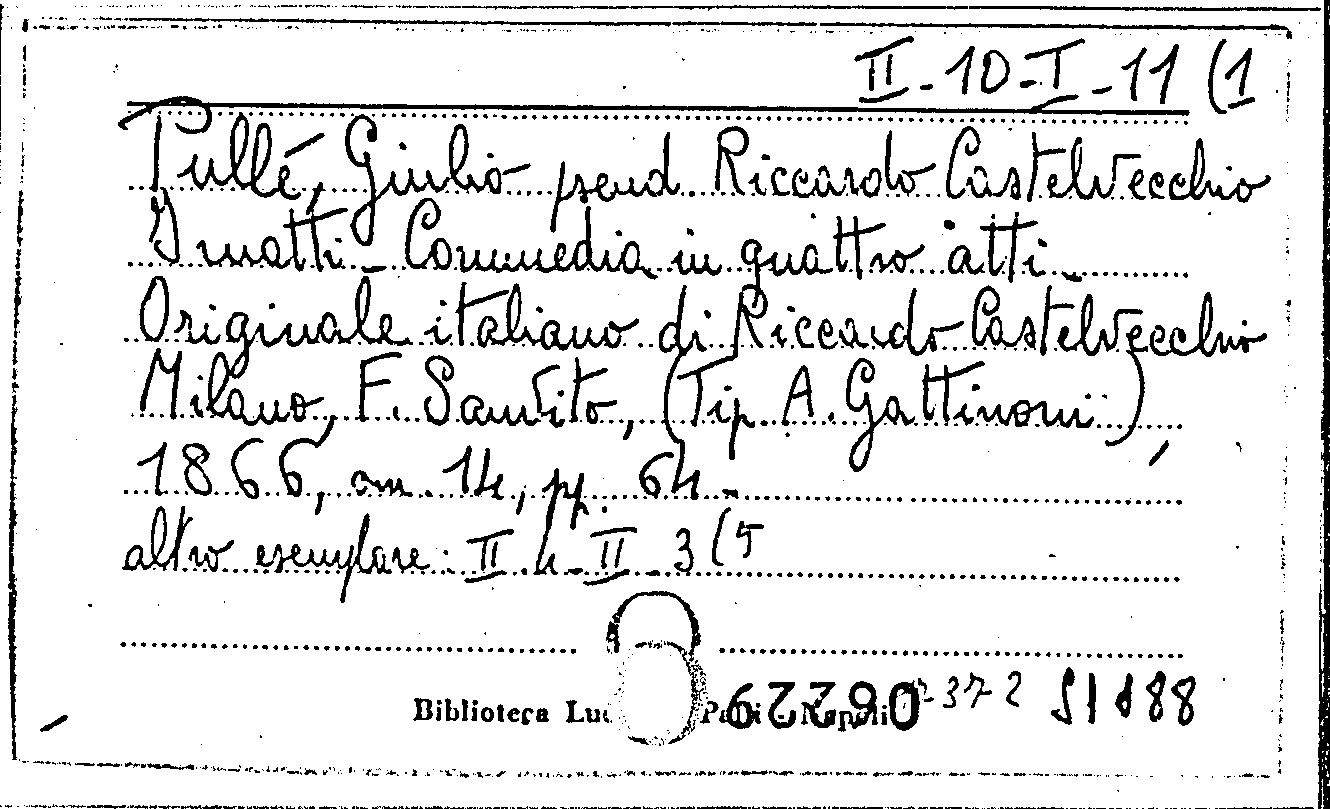 II-10-I-11 (1
Pullé, Giulio pseud Riccardo Castelvecchio
I matti - Commedia in quattro atti -
Originale italiano di Riccardo Castelvecchio
Milano, F. Sanvito, (Tip. A. Gattinoni),
1866, cm. 14, pp. 64 -
altro esemplare: II 4-II-3 (5
Biblioteca Luc
06229